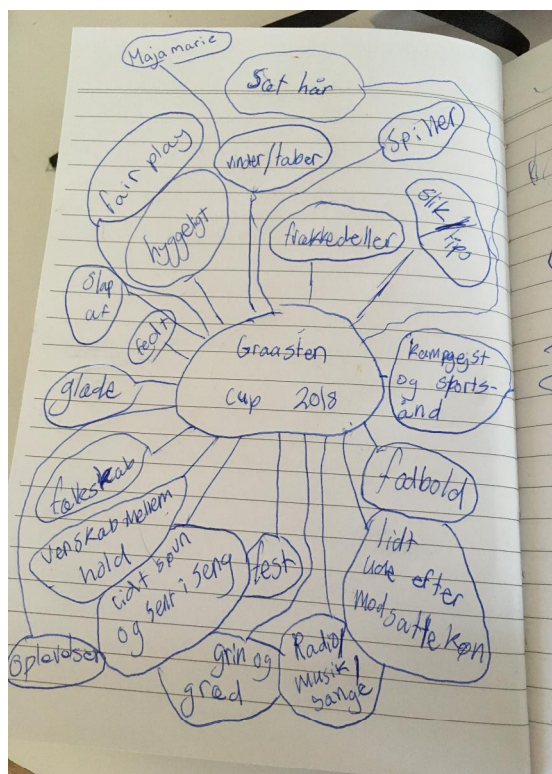 Majamarie
Sæt hår
fair play
vinder/taber
Spiller
hyggeligt
frækkedeller
slik/
Slap
af
fedt
Graasten
cup 2018
kampgejst
og sports-
ånd
glade
fælesskab
fodbold
venskab mellem
hold
lidt søvn
og sent i seng
fest
lidt
ude efter
modsatte køn
oplevelser
grin og
græd
Radio/
musik/
sange